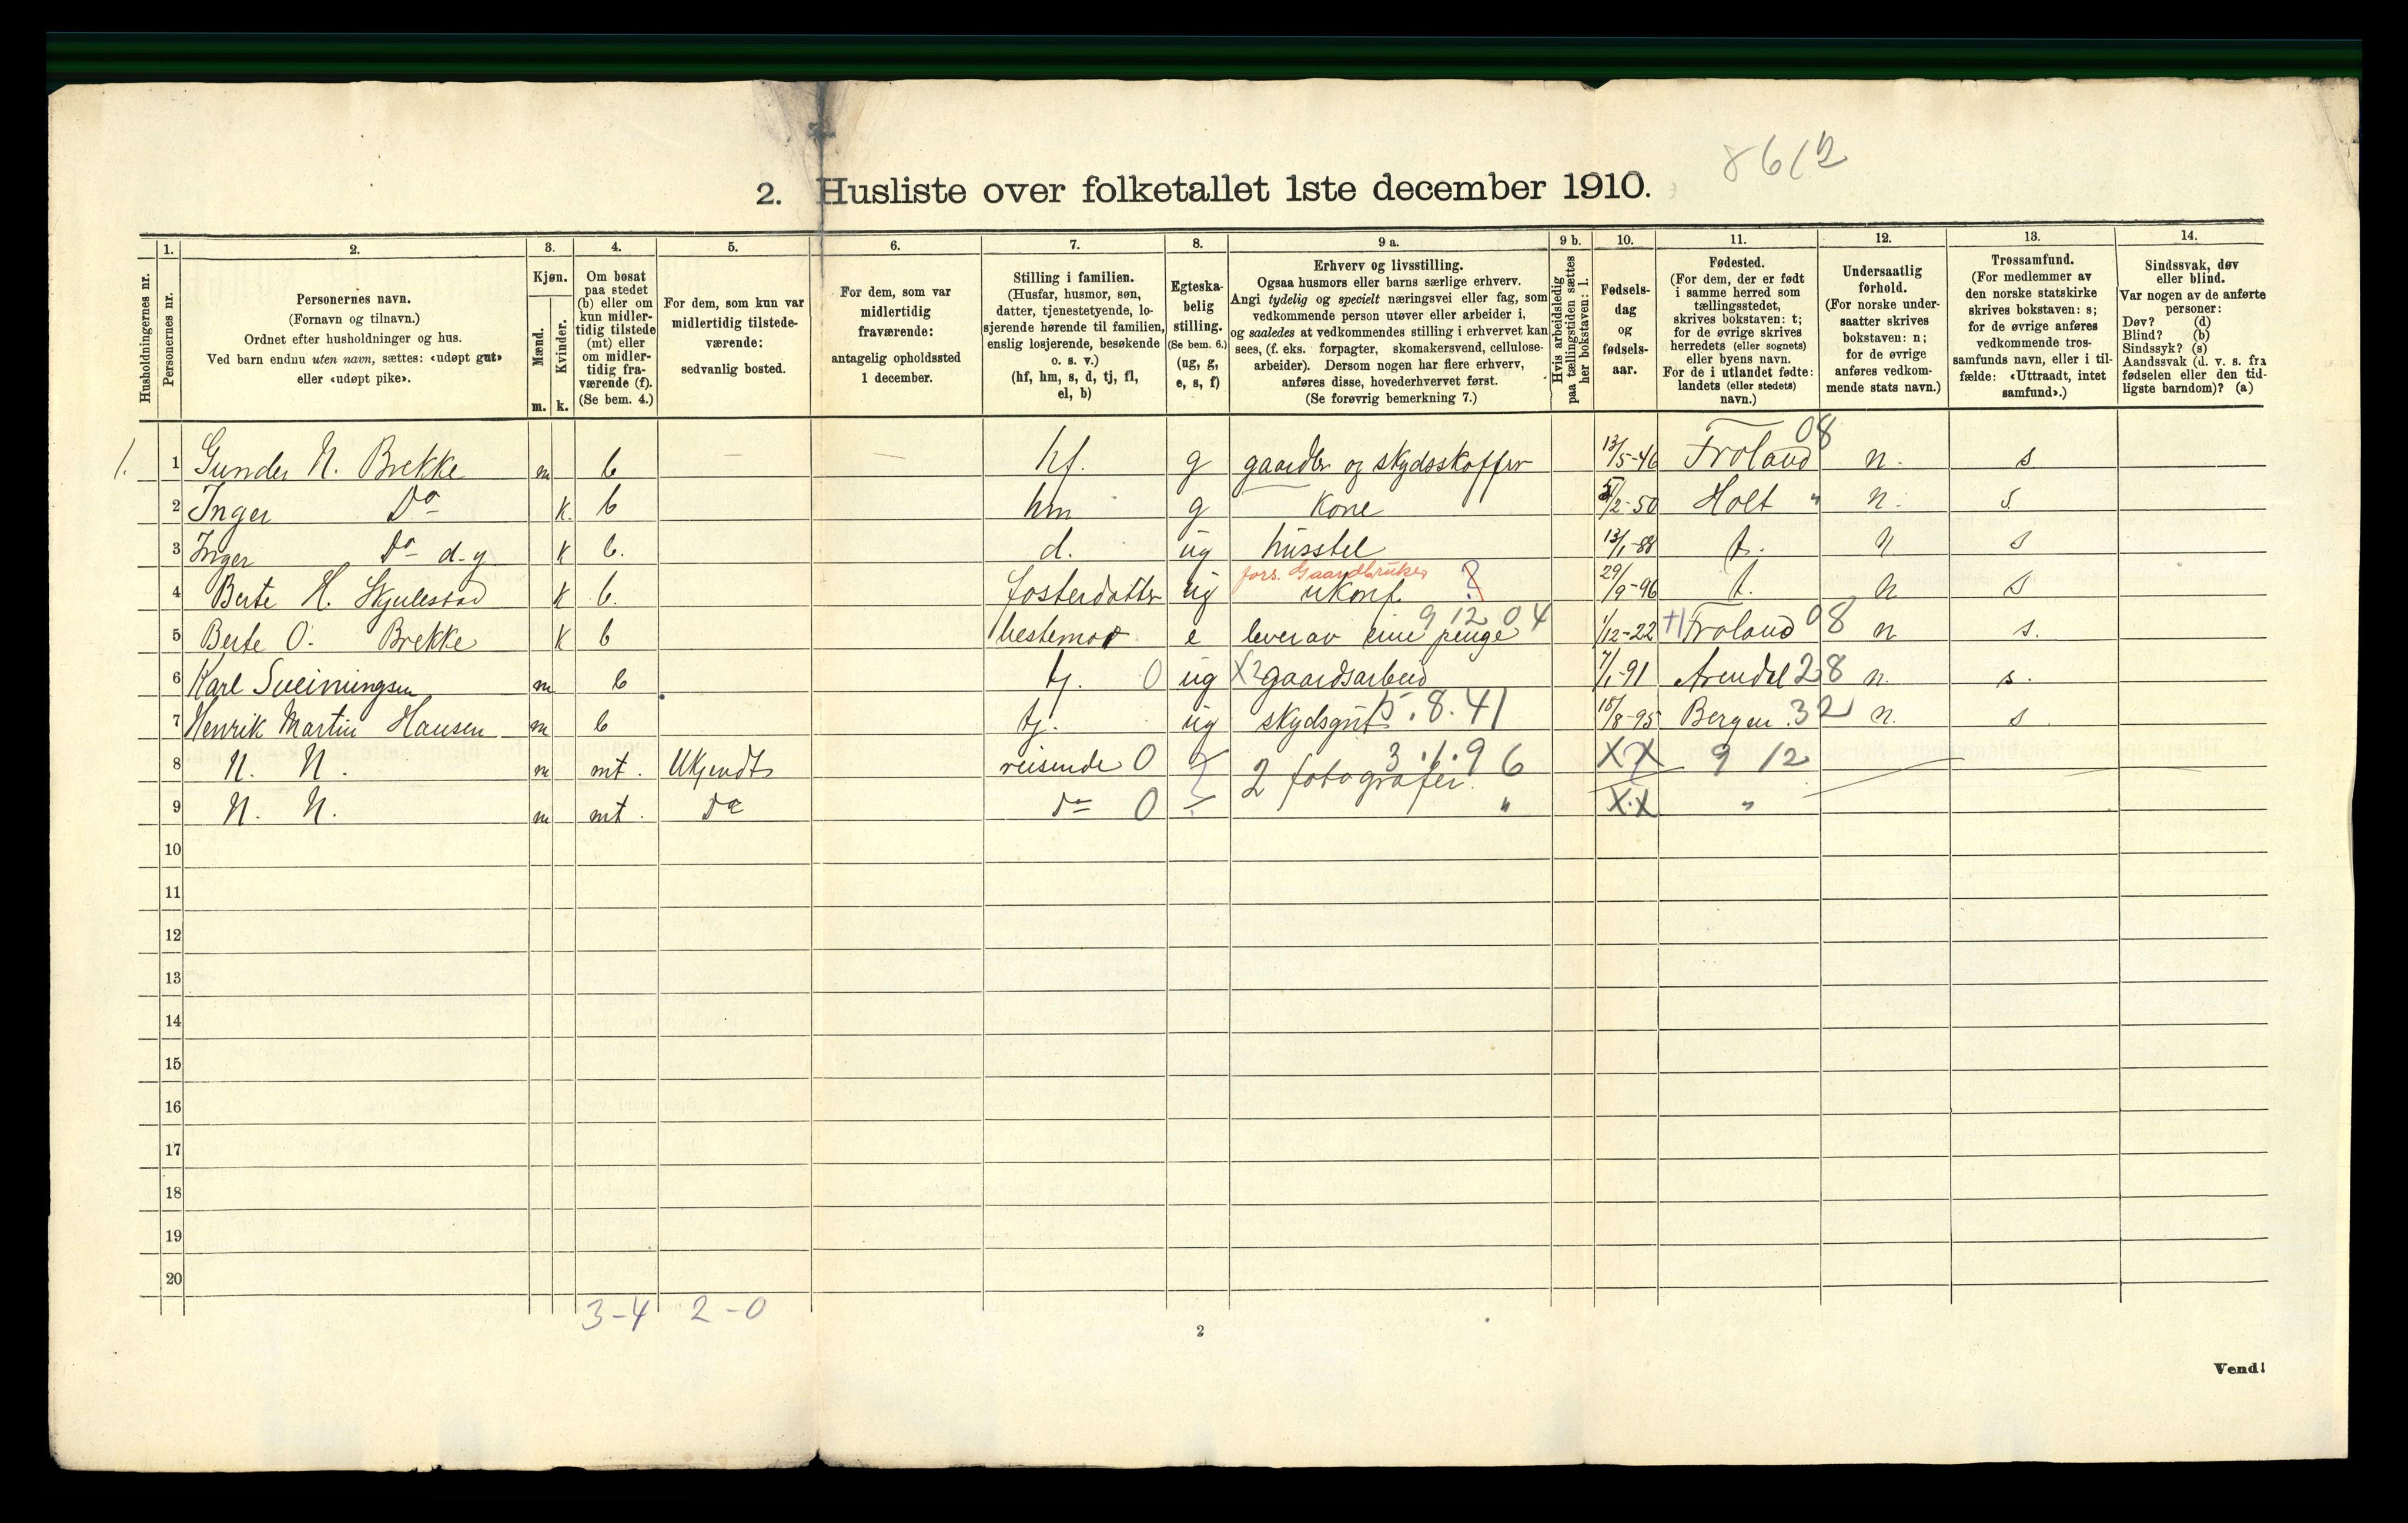 8612
2. Husliste over folketallet 1ste december 1910.
Husholdningernes nr.
1. Personernes nr.
2. Personernes navn. (Fornavn og tilnavn.) Ordnet efter husholdninger og hus. Ved barn endnu uten navn, sættes: «udøpt gut» eller «udøpt pike».
3. Kjøn. Mænd. m. Kvinder. k.
4. Om bosat paa stedet (b) eller om kun midlertidig tilstede (mt) eller om midlertidig fraværende (f). (Se bem. 4.)
5. For dem, som kun var midlertidig tilstedeværende: sedvanlig bosted.
6. For dem, som var midlertidig fraværende: antagelig opholdssted 1 december.
7. Stilling i familien. (Husfar, husmor, søn, datter, tjenestetyende, losjerende hørende til familien, enslig losjerende, besøkende o. s. v.) (hf, hm, s, d, tj, fl, el, b)
8. Egteskabelig stilling. (Se bem. 6.) (ug, g, e, s, f)
9 a. Erhverv og livsstilling. Ogsaa husmors eller barns særlige erhverv. Angi tydelig og specielt næringsvei eller fag, som vedkommende person utøver eller arbeider i, og saaledes at vedkommendes stilling i erhvervet kan sees, (f. eks. forpagter, skomakersvend, cellulosearbeider). Dersom nogen har flere erhverv, anføres disse, hovederhvervet først. (Se forøvrig bemerkning 7.)
9 b. Hvis arbeidsledig paa tællingstiden sættes her bokstaven: l.
10. Fødselsdag og fødselsaar.
11. Fødested. (For dem, der er født i samme herred som tællingsstedet, skrives bokstaven: t; for de øvrige skrives herredets (eller sognets) eller byens navn. For de i utlandet fødte: landets (eller stedets) navn.)
12. Undersaatlig forhold. (For norske undersaatter skrives bokstaven: n; for de øvrige anføres vedkommende stats navn.)
13. Trossamfund. (For medlemmer av den norske statskirke skrives bokstaven: s; for de øvrige anføres vedkommende trossamfunds navn, eller i tilfælde: «Uttraadt, intet samfund».)
14. Sindssvak, døv eller blind. Var nogen av de anførte personer: Døv? (d) Blind? (b) Sindssyk? (s) Aandssvak (d. v. s. fra fødselen eller den tidligste barndom)? (a)
1. 1 Gunder N. Brekke m b — — hf. g gaardbr og skydsskaffer 13/5-46 Froland 08 n. s
2 Inger Do k. b hm g kone 5/2-50 Holt " n. s.
3 Inger Do d-y k b. d. ug husstel 13/1-88 t. n s
4 Berte H. Skjulestad k b. fosterdatter ug fors. Gaardbruker ukonf ? 29/9-96 t. n s
5 Berte O. Brekke k b bestemor e lever av sine penge 9 12 04 1/12-22 Froland 08 n s.
6 Karl Sveinungsen m b tj. 0 ug X2 gaardsarbeid 7/1-91 Arendal 28 n. s.
7 Henrik Martin Hansen m b tj. ug skydsgut 5.8.41 15/8-95 Bergen 32 n. s
8 N. N. m mt. Ukjendt reisende 0 ? 2 fotografer 3.1.96 XX 9 12
9 N. N. m mt. Do do 0 " X.X "
10
11
12
13
14
15
16
17
18
19
20
3-4 2-0
2
Vend!